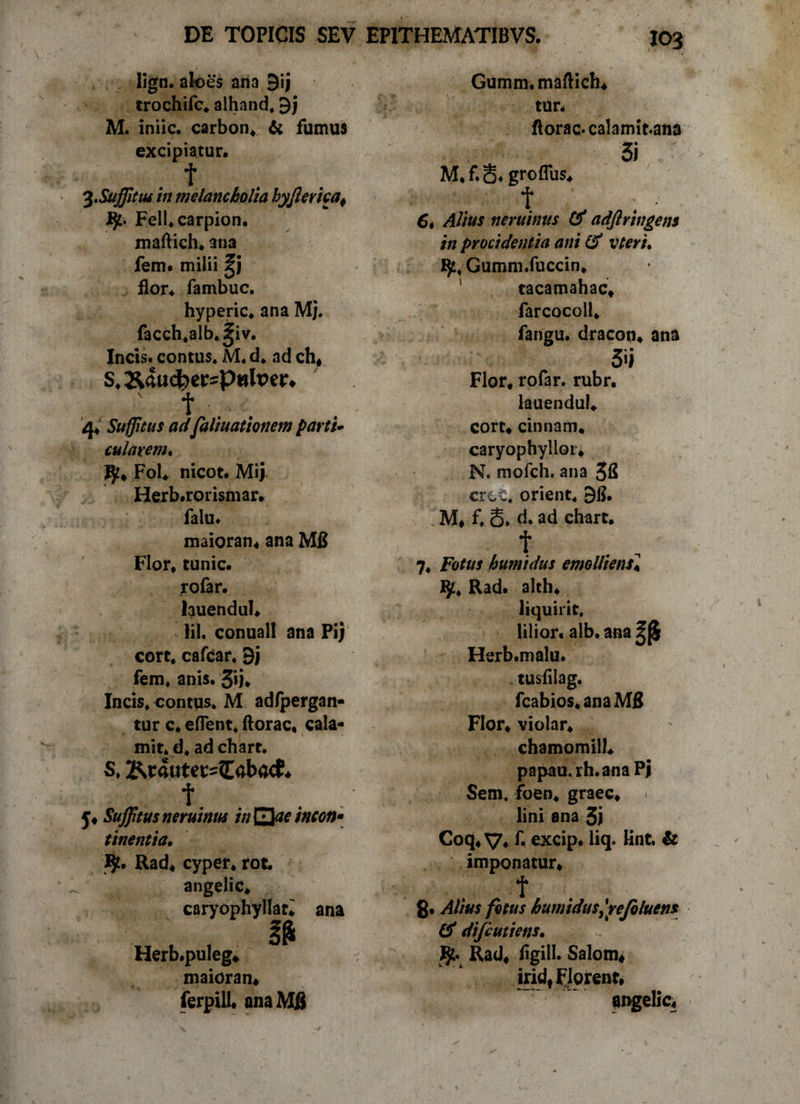 DE TOPICIS SEV EPITHEMATIBVS. 103
lign. aloës ana ℈ij
trochiſc. alhand. ℈j
M. iniic. carbon. & fumus
excipiatur.
†
3. Suffitus in melancholia hyſterica.
℞. Fell. carpion.
maſtich. ana
ſem. milii ℥j
flor. ſambuc.
hyperic. ana Mj.
ſacch. alb. ℥iv.
Incis. contus. M. d. ad ch.
S. Räucher=Pulver.
†
4. Suffitus ad ſaliuationem parti-
cularem.
℞. Fol. nicot. Mij
Herb. rorismar.
ſalu.
maioran. ana Mß
Flor. tunic.
roſar.
lauendul.
lil. conuall ana Pij
cort. caſcar. ℈j
ſem. anis. ʒij.
Incis. contus. M adſpergan-
tur c. eſſent. ſtorac. cala-
mit. d. ad chart.
S. Kräuter=Taback.
†
5. Suffitus neruinus in ae incon-
tinentia.
℞. Rad. cyper. rot.
angelic.
caryophyllat. ana
℥ß
Herb. puleg.
maioran.
ſerpill. ana Mß
Gumm. maſtich.
tur.
ſtorac. calamit. ana
ʒi
M. f. groſſus.
†
6. Alius neruinus & adſtringens
in procidentia ani & vteri.
℞. Gumm. ſuccin.
tacamahac.
ſarcocoll.
ſangu. dracon. ana
ʒij
Flor. roſar. rubr.
lauendul.
cort. cinnam.
caryophyllor.
N. moſch. ana ʒß
croc. orient. ℈ß.
M. f. d. ad chart.
†
7. Fotus humidus emolliens.
℞. Rad. alth.
liquirit.
lilior. alb. ana ℥ß
Herb. malu.
tusſilag.
ſcabios. ana Mß
Flor. violar.
chamomill.
papau. rh. ana Pj
Sem. foen. graec.
lini ana ʒj
Coq. ▽. f. excip. liq. lint. &
imponatur.
†
8. Alius fotus humidus, reſoluens
& diſcutiens.
℞. Rad. ſigill. Salom.
irid. Florent.
angelic.